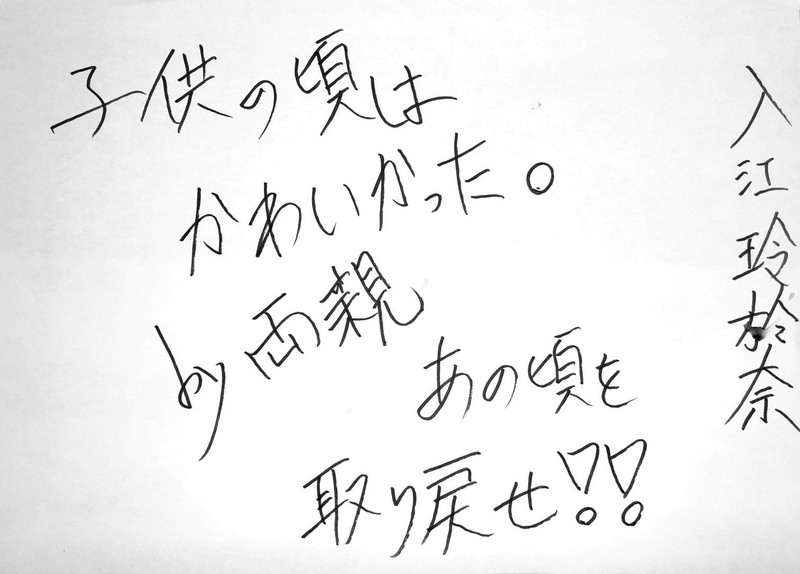 子供の頃は
かわいかった。
by 両親
あの頃を
取り戻せ!!
入江玲於奈